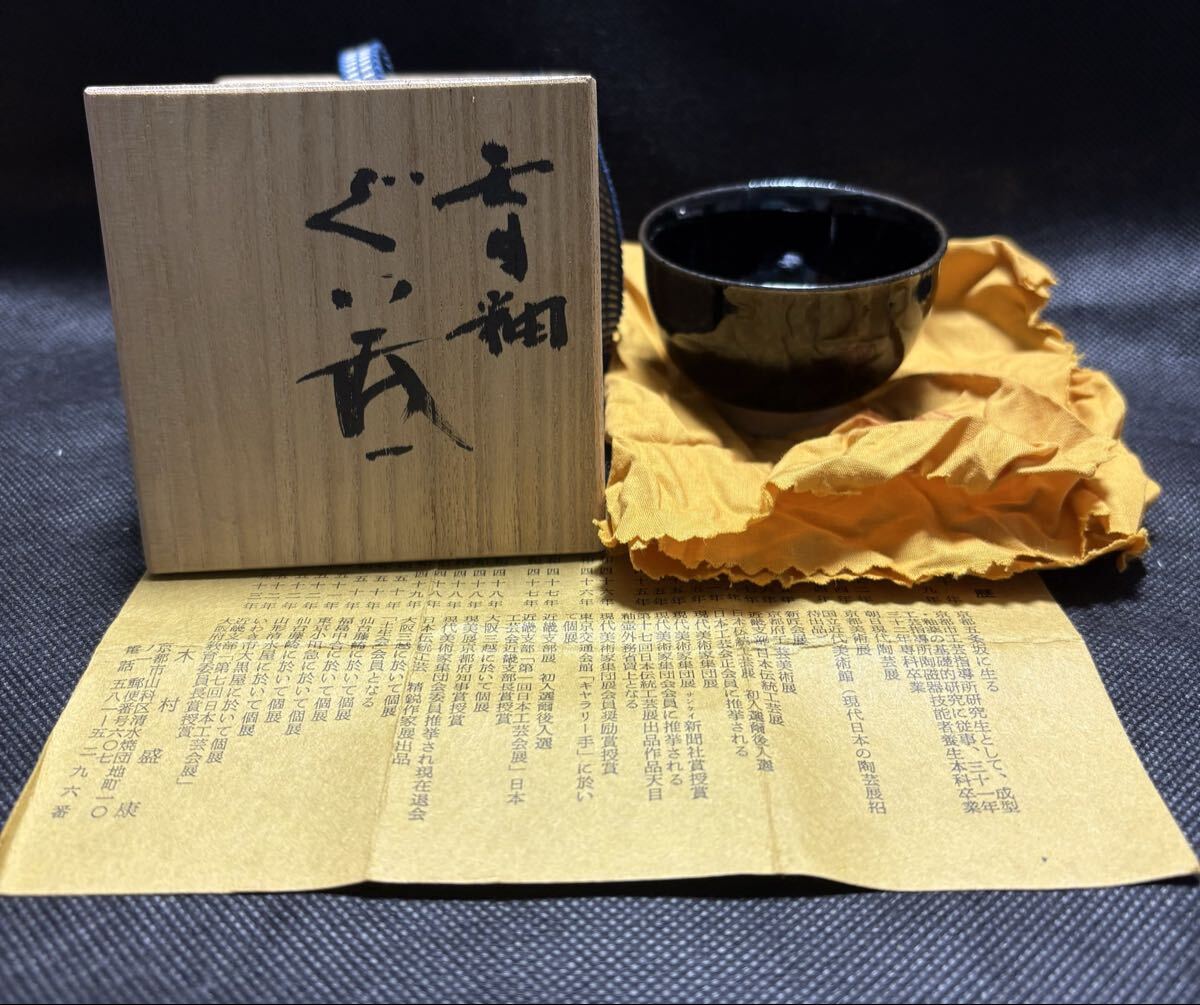 青釉
ぐい呑
歴
京都五条坂に生る
京都市工芸指導所研究生として、成型
釉薬の基礎的研究に従事、三十一年
工芸指導所陶磁器技能者養生本科卒業
三十二年専科卒業
朝日現代陶芸展
京都美術展
国立近代美術館（現代日本の陶芸展招
待出品）
新匠工芸展
京都府工芸美術展
近畿支部日本伝統工芸展 初入選爾後入選
日本伝統工芸展 初入選爾後入選
日本工芸会正会員に推挙される
現代美術家集団展 サンケイ新聞社賞授賞
現代美術家集団会会員に推挙される
第十七回日本伝統工芸展出品作品天目
釉壺外務省買上となる
四十六年 現代美術家集団展会員奨励賞授賞
東京交通会館「キャラリー手」に於い
て個展
四十七年 近畿支部展 初入選爾後入選
四十七年 近畿支部 第一回日本工芸会展」日本
工芸会近畿支部長賞授賞
四十八年 大阪三越に於いて個展
四十八年 京都美展京都府知事賞授賞
四十八年 現代美術家集団会委員推挙され現在退会
四十九年 日本伝統工芸 精鋭作家展出品
五十年 大阪三越に於いて個展
五十年 士生会会員となる
五十一年 仙台藤崎に於いて個展
五十一年 福島中合に於いて個展
五十二年 東京小田急に於いて個展
五十二年 仙台藤崎に於いて個展
五十二年 山形清水屋に於いて個展
五十三年 いわき市大黒屋に於いて個展
近畿支部「第七回日本工芸会展」
大阪府教育委員長賞授賞
木村盛康
京都市山科区清水焼団地町一〇
郵便番号六〇七
電話 五八一―五二九六番